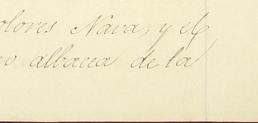 olores Nava, y el
o albacea de la